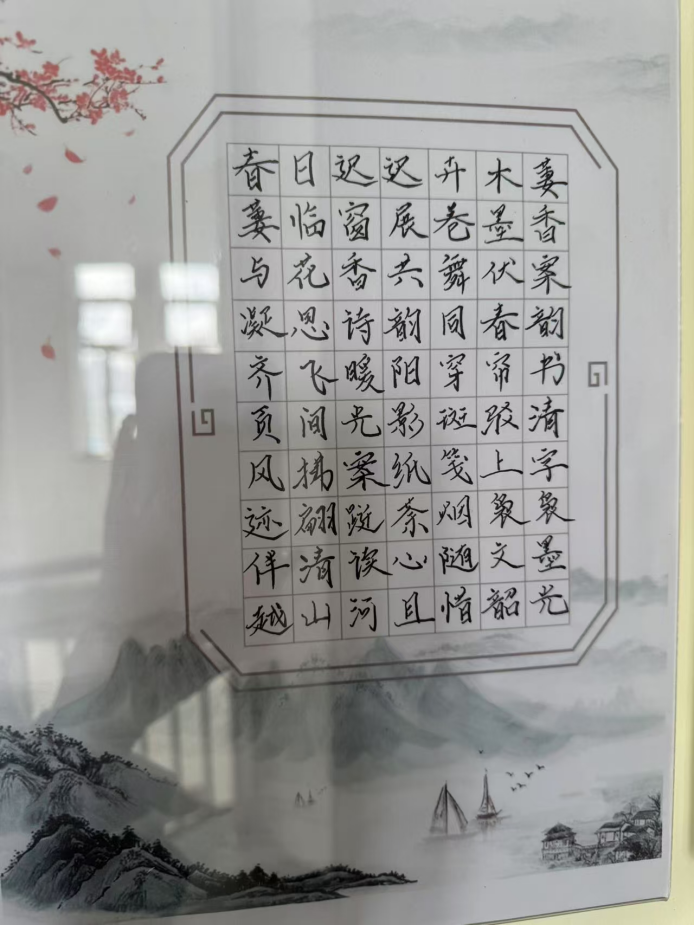 春日迟迟卉木萋
萋临窗展卷墨香
与花香共舞伏案
凝思诗韵同春韵
齐飞暖阳穿帘书
页间光影斑驳清
风拂案纸笺上字
迹翩跹萦烟袅袅
伴清读心随文墨
越山河且惜韶光